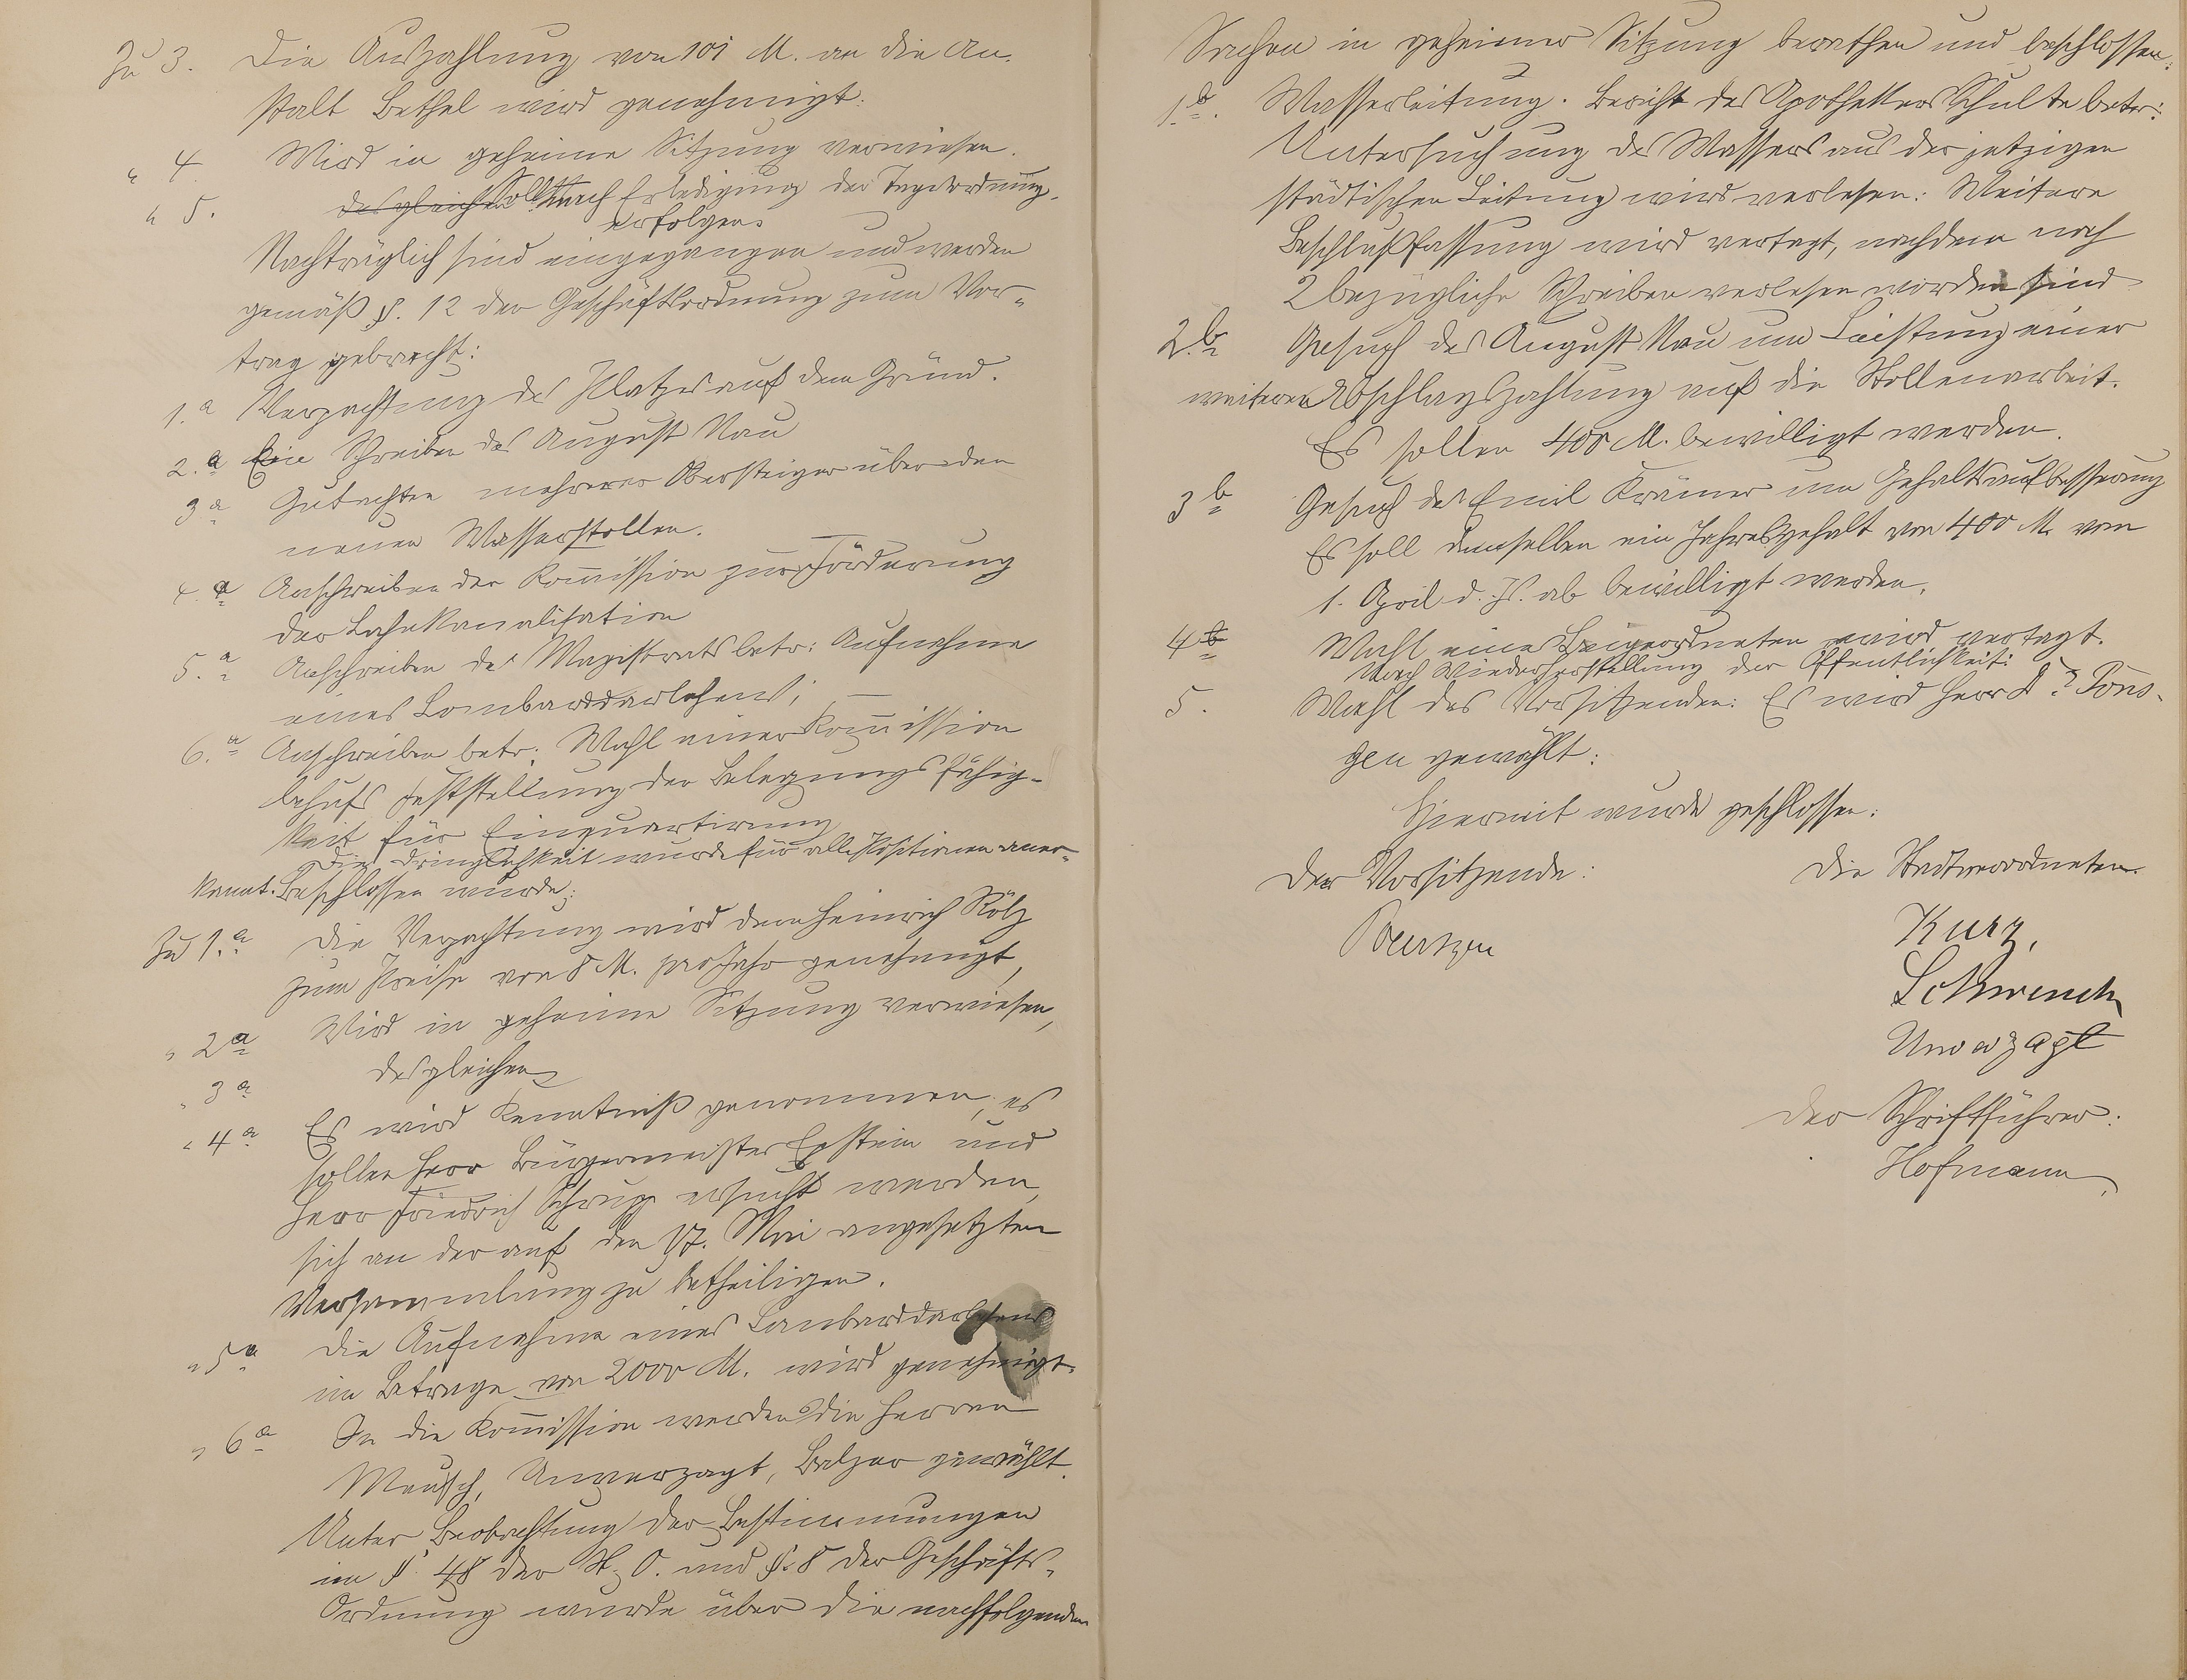 Zu 3. Die Auszahlung von 101 M. an die An-
stalt Bethel wird genehmigt.
" 4. Wird in geheime Sitzung verwiesen.
" 5. desgleichen Soll nach Erledigung der Tagesordnung
erfolgen.
Nachträglich sind eingegangen und werden
gemäß §. 12 der Geschäftsordnung zum Vor-
trag gebracht:
1.a Verpachtung des Platzes auf dem Gründ.
2.a Ein Schreiben des August Nau
3a Gutachten mehrerer Obersteiger über den
neuen Wasserstollen.
4.a Anschreiben der Kommission zur Förderung
der Lahnkanalisation
5.a Anschreiben des Magistrats betr: Aufnahme
eines Lombarddarlehens;
6.a Anschreiben betr: Wahl einer Kommission
behufs Feststellung der Belegungsfähig-
keit für Einquartirung
Die Dringlichkeit wurde für alle Positionen aner-
kannt. Beschlossen wurde;
Zu 1.a Die Verpachtung wird dem Heinrich Kölz
zum Preise von 8 M. pro Jahr genehmigt,
" 2a Wird in geheime Sitzung verwiesen,
" 3a desgleichen
" 4a Es wird Kenntniß genommen, es
sollen Herr Bürgermeister Epstein und
Herr Friedrich Schrupp ersucht werden,
sich an der auf den 17. Mai angesetzten
Versammlung zu betheiligen.
" 5a Die Aufnahme eines Lombarddarlehens
im Betrage von 2000 M. wird genehmigt.
" 6a In die Kommission werden die Herren
Mensch, Unverzagt, Balzer gewählt.
Unter Beobachtung der Bestimmungen
im § 48 der St. O. und §. 8 der Geschäfts-
Ordnung wurde über die nachfolgenden
Sachen in geheimer Sitzung berathen und beschlossen:
1b. Wasserleitung. Bericht des Apothekers Schulte betr:
Untersuchung des Wassers aus der jetzigen
städtischen Leitung wird verlesen: Weitere
Beschlußfassung wird vertagt, nachdem noch
2 bezügliche Schreiben verlesen worden sind
2.b Gesuch des August Nau um Leistung einer
weiteren Abschlagszahlung auf die Stollenarbeit.
Es sollen 400 M. bewilligt werden.
3b Gesuch des Emil Krämer um Gehaltsaufbesserung
Es soll demselben ein Jahresgehalt von 400 M. vom
1. April d. Js. ab bewilligt werden.
4b Wahl eines Beigeordneten wird vertagt.
Nach Wiederherstellung der Öffentlichkeit:
5. Wahl des Vorsitzenden: Es wird Herr Dr. Töns-
gen gewählt.
Hiermit wurde geschlossen:
Der Vorsitzende: Die Stadtverordneten.
Kurz,
Schwenck
Unverzagt
Der Schriftführer:
Hofmann,